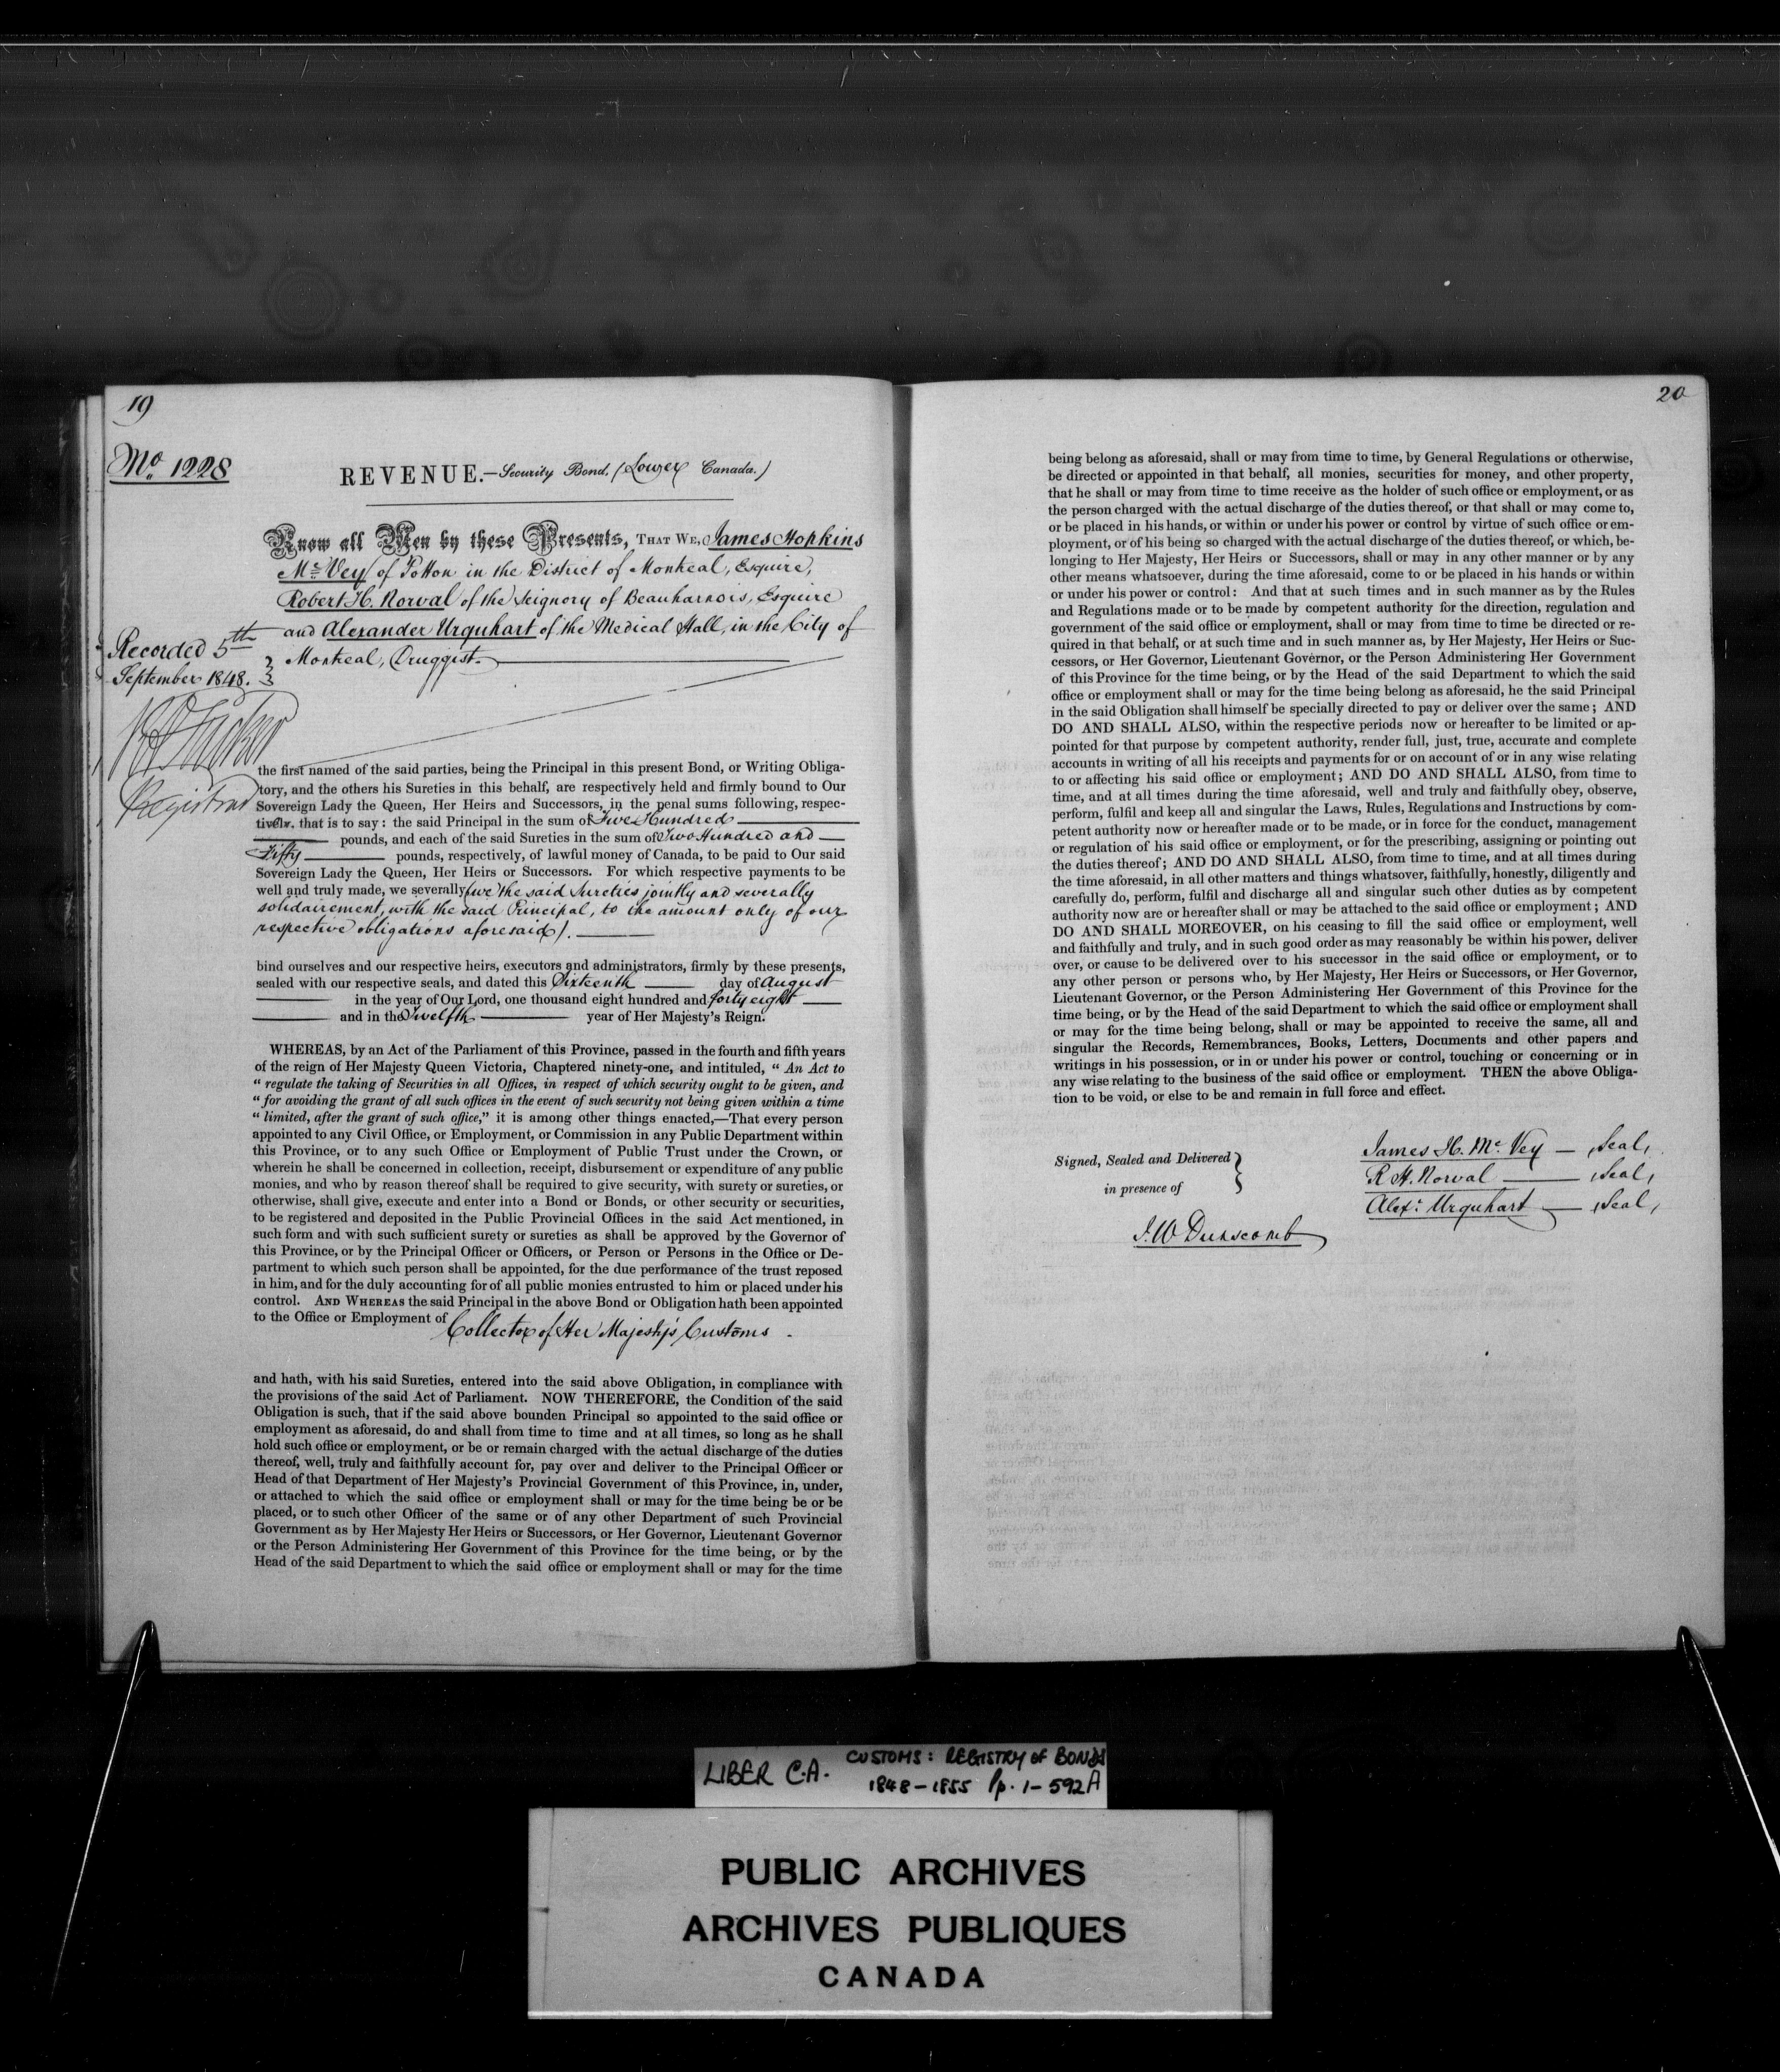 19
No. 1228
REVENUE.—Security Bond, (Lower Canada.)
Know all Men by these Presents, THAT WE, James Hopkins
Mc Vey of Potton in the District of Montreal, Esquire,
Robert H. Norval of the Seignory of Beauharnois, Esquire
and Alexander Urquhart of the Medical Hall, in the City of
Montreal, Druggist.
Recorded 5th
September 1848.
Registrar
the first named of the said parties, being the Principal in this present Bond, or Writing Obliga-
tory, and the others his Sureties in this behalf, are respectively held and firmly bound to Our
Sovereign Lady the Queen, Her Heirs and Successors, in the penal sums following, respec-
tively, that is to say: the said Principal in the sum of Five Hundred
pounds, and each of the said Sureties in the sum of Two Hundred and
Fifty pounds, respectively, of lawful money of Canada, to be paid to Our said
Sovereign Lady the Queen, Her Heirs or Successors. For which respective payments to be
well and truly made, we severally (we the said Sureties jointly and severally
solidairement, with the said Principal, to the amount only of our
respective obligations aforesaid).
bind ourselves and our respective heirs, executors and administrators, firmly by these presents,
sealed with our respective seals, and dated this Sixteenth day of August
in the year of Our Lord, one thousand eight hundred and forty eight
and in the Twelfth year of Her Majesty's Reign.
WHEREAS, by an Act of the Parliament of this Province, passed in the fourth and fifth years
of the reign of Her Majesty Queen Victoria, Chaptered ninety-one, and intituled, “ An Act to
“ regulate the taking of Securities in all Offices, in respect of which security ought to be given, and
“ for avoiding the grant of all such offices in the event of such security not being given within a time
“ limited, after the grant of such office,” it is among other things enacted,—That every person
appointed to any Civil Office, or Employment, or Commission in any Public Department within
this Province, or to any such Office or Employment of Public Trust under the Crown, or
wherein he shall be concerned in collection, receipt, disbursement or expenditure of any public
monies, and who by reason thereof shall be required to give security, with surety or sureties, or
otherwise, shall give, execute and enter into a Bond or Bonds, or other security or securities,
to be registered and deposited in the Public Provincial Offices in the said Act mentioned, in
such form and with such sufficient surety or sureties as shall be approved by the Governor of
this Province, or by the Principal Officer or Officers, or Person or Persons in the Office or De-
partment to which such person shall be appointed, for the due performance of the trust reposed
in him, and for the duly accounting for of all public monies entrusted to him or placed under his
control. AND WHEREAS the said Principal in the above Bond or Obligation hath been appointed
to the Office or Employment of
Collector of Her Majesty's Customs
and hath, with his said Sureties, entered into the said above Obligation, in compliance with
the provisions of the said Act of Parliament. NOW THEREFORE, the Condition of the said
Obligation is such, that if the said above bounden Principal so appointed to the said office or
employment as aforesaid, do and shall from time to time and at all times, so long as he shall
hold such office or employment, or be or remain charged with the actual discharge of the duties
thereof, well, truly and faithfully account for, pay over and deliver to the Principal Officer or
Head of that Department of Her Majesty's Provincial Government of this Province, in, under,
or attached to which the said office or employment shall or may for the time being be or be
placed, or to such other Officer of the same or of any other Department of such Provincial
Government as by Her Majesty Her Heirs or Successors, or Her Governor, Lieutenant Governor
or the Person Administering Her Government of this Province for the time being, or by the
Head of the said Department to which the said office or employment shall or may for the time
20
being belong as aforesaid, shall or may from time to time, by General Regulations or otherwise,
be directed or appointed in that behalf, all monies, securities for money, and other property,
that he shall or may from time to time receive as the holder of such office or employment, or as
the person charged with the actual discharge of the duties thereof, or that shall or may come to,
or be placed in his hands, or within or under his power or control by virtue of such office or em-
ployment, or of his being so charged with the actual discharge of the duties thereof, or which, be-
longing to Her Majesty, Her Heirs or Successors, shall or may in any other manner or by any
other means whatsoever, during the time aforesaid, come to or be placed in his hands or within
or under his power or control: And that at such times and in such manner as by the Rules
and Regulations made or to be made by competent authority for the direction, regulation and
government of the said office or employment, shall or may from time to time be directed or re-
quired in that behalf, or at such time and in such manner as, by Her Majesty, Her Heirs or Suc-
cessors, or Her Governor, Lieutenant Governor, or the Person Administering Her Government
of this Province for the time being, or by the Head of the said Department to which the said
office or employment shall or may for the time being belong as aforesaid, he the said Principal
in the said Obligation shall himself be specially directed to pay or deliver over the same; AND
DO AND SHALL ALSO, within the respective periods now or hereafter to be limited or ap-
pointed for that purpose by competent authority, render full, just, true, accurate and complete
accounts in writing of all his receipts and payments for or on account of or in any wise relating
to or affecting his said office or employment; AND DO AND SHALL ALSO, from time to
time, and at all times during the time aforesaid, well and truly and faithfully obey, observe,
perform, fulfil and keep all and singular the Laws, Rules, Regulations and Instructions by com-
petent authority now or hereafter made or to be made, or in force for the conduct, management
or regulation of his said office or employment, or for the prescribing, assigning or pointing out
the duties thereof; AND DO AND SHALL ALSO, from time to time, and at all times during
the time aforesaid, in all other matters and things whatsoever, faithfully, honestly, diligently and
carefully do, perform, fulfil and discharge all and singular such other duties as by competent
authority now are or hereafter shall or may be attached to the said office or employment; AND
DO AND SHALL MOREOVER, on his ceasing to fill the said office or employment, well
and faithfully and truly, and in such good order as may reasonably be within his power, deliver
over, or cause to be delivered over to his successor in the said office or employment, or to
any other person or persons who, by Her Majesty, Her Heirs or Successors, or Her Governor,
Lieutenant Governor, or the Person Administering Her Government of this Province for the
time being, or by the Head of the said Department to which the said office or employment shall
or may for the time being belong, shall or may be appointed to receive the same, all and
singular the Records, Remembrances, Books, Letters, Documents and other papers and
writings in his possession, or in or under his power or control, touching or concerning or in
any wise relating to the business of the said office or employment. THEN the above Obliga-
tion to be void, or else to be and remain in full force and effect.
Signed, Sealed and Delivered
in presence of
J. W Dunscomb
James H. Mc Vey — Seal,
R H. Norval — Seal,
Alexr. Urquhart — Seal,
LIBER C.A. CUSTOMS: REGISTRY of BONDS
1848-1855 Pp. 1-592A
PUBLIC ARCHIVES
ARCHIVES PUBLIQUES
CANADA